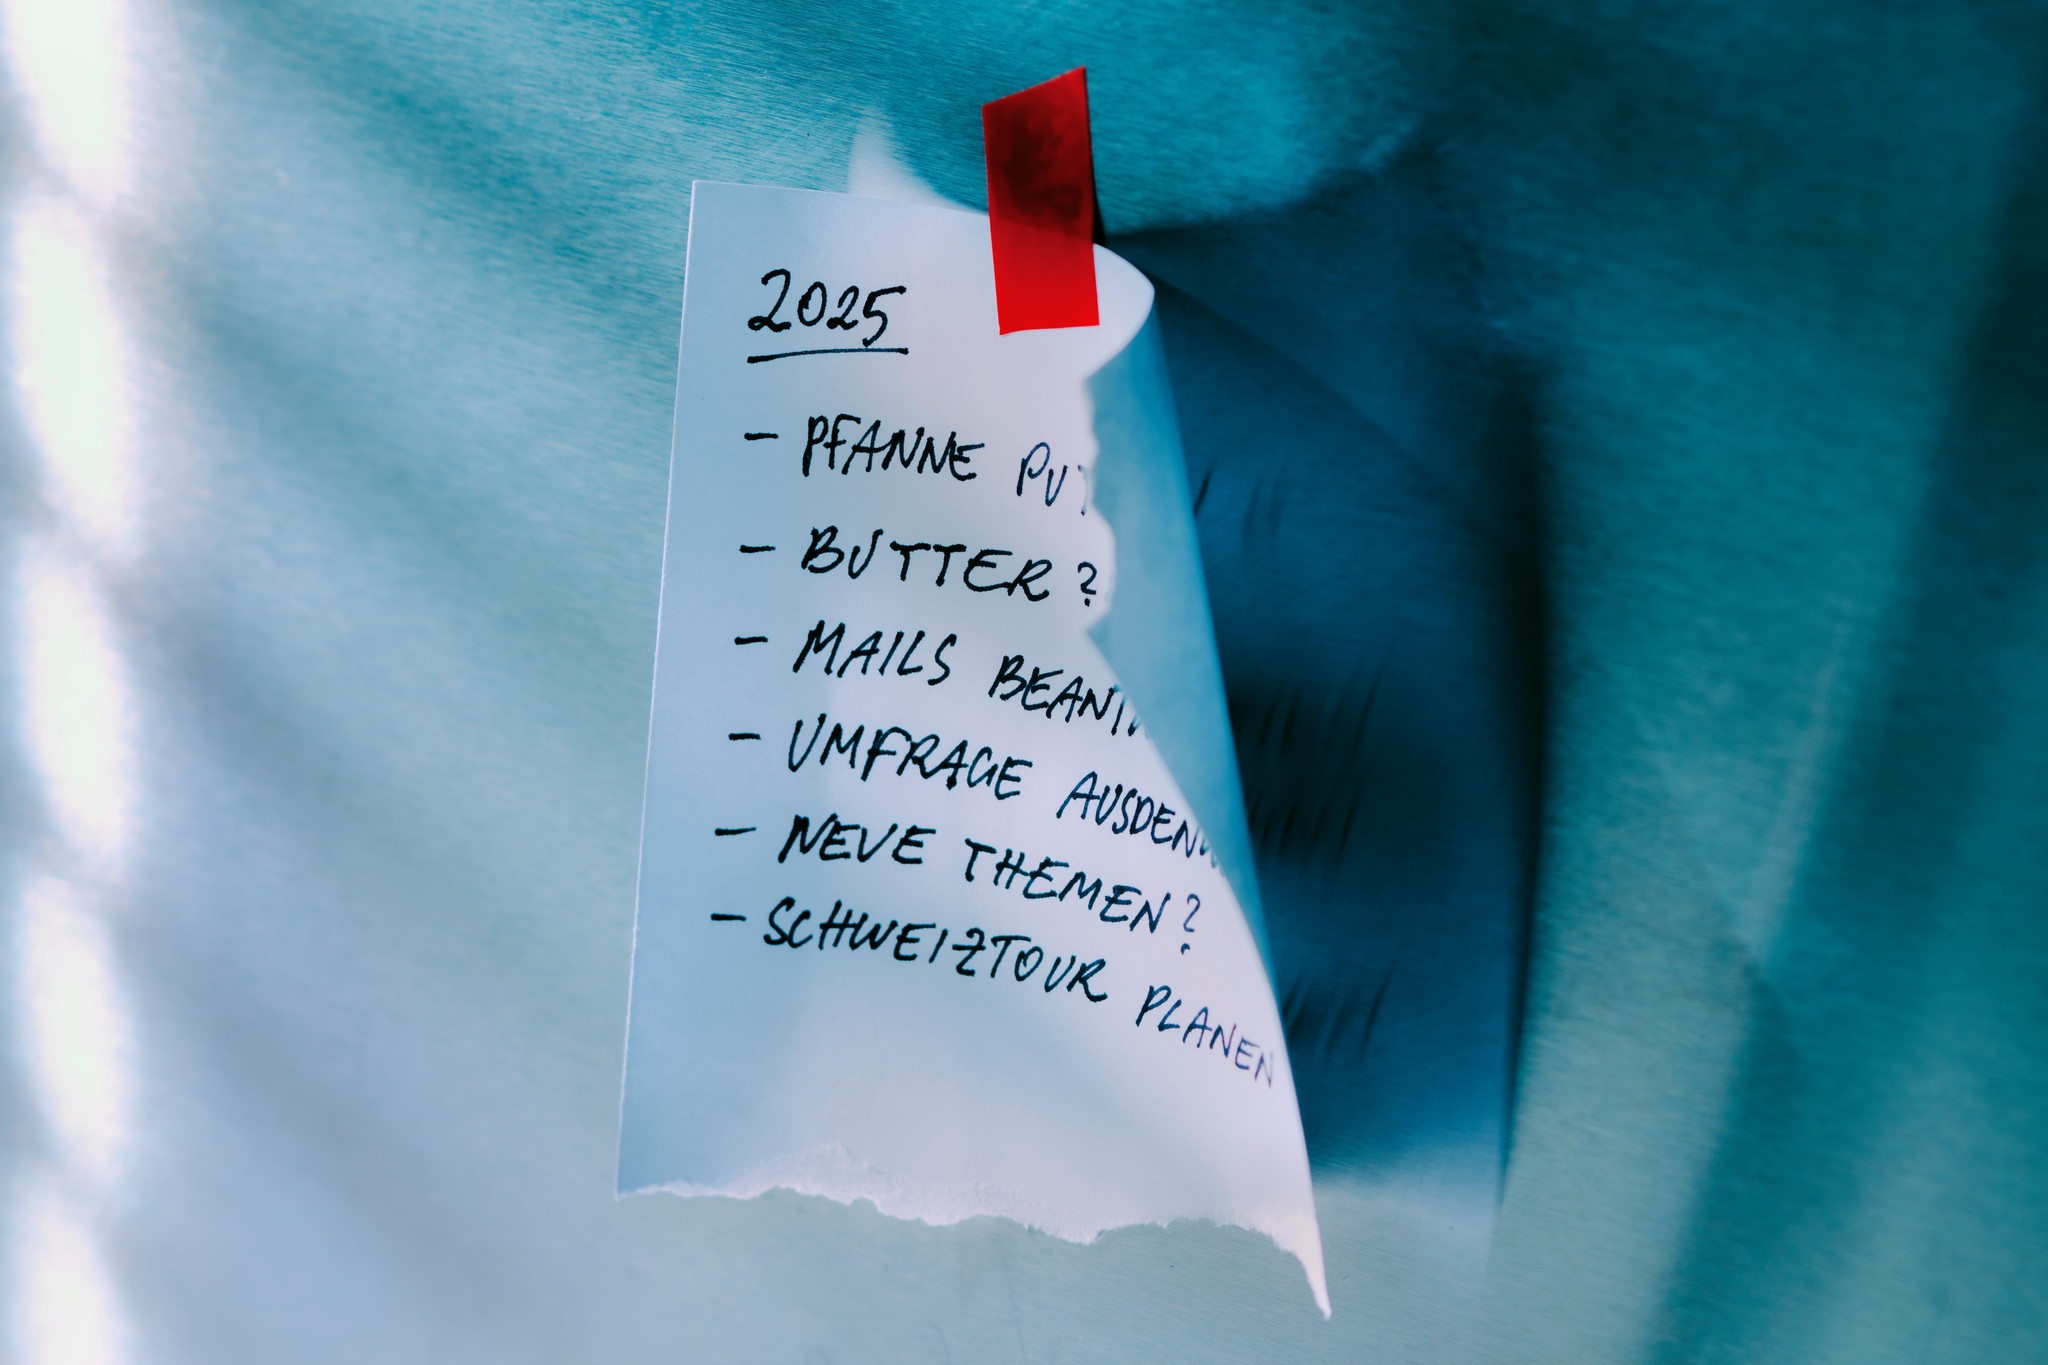 2025
- PFANNE PUT
- BUTTER?
- MAILS BEANTW
- UMFRAGE AUSDENK
- NEUE THEMEN?
- SCHWEIZTOUR PLANEN